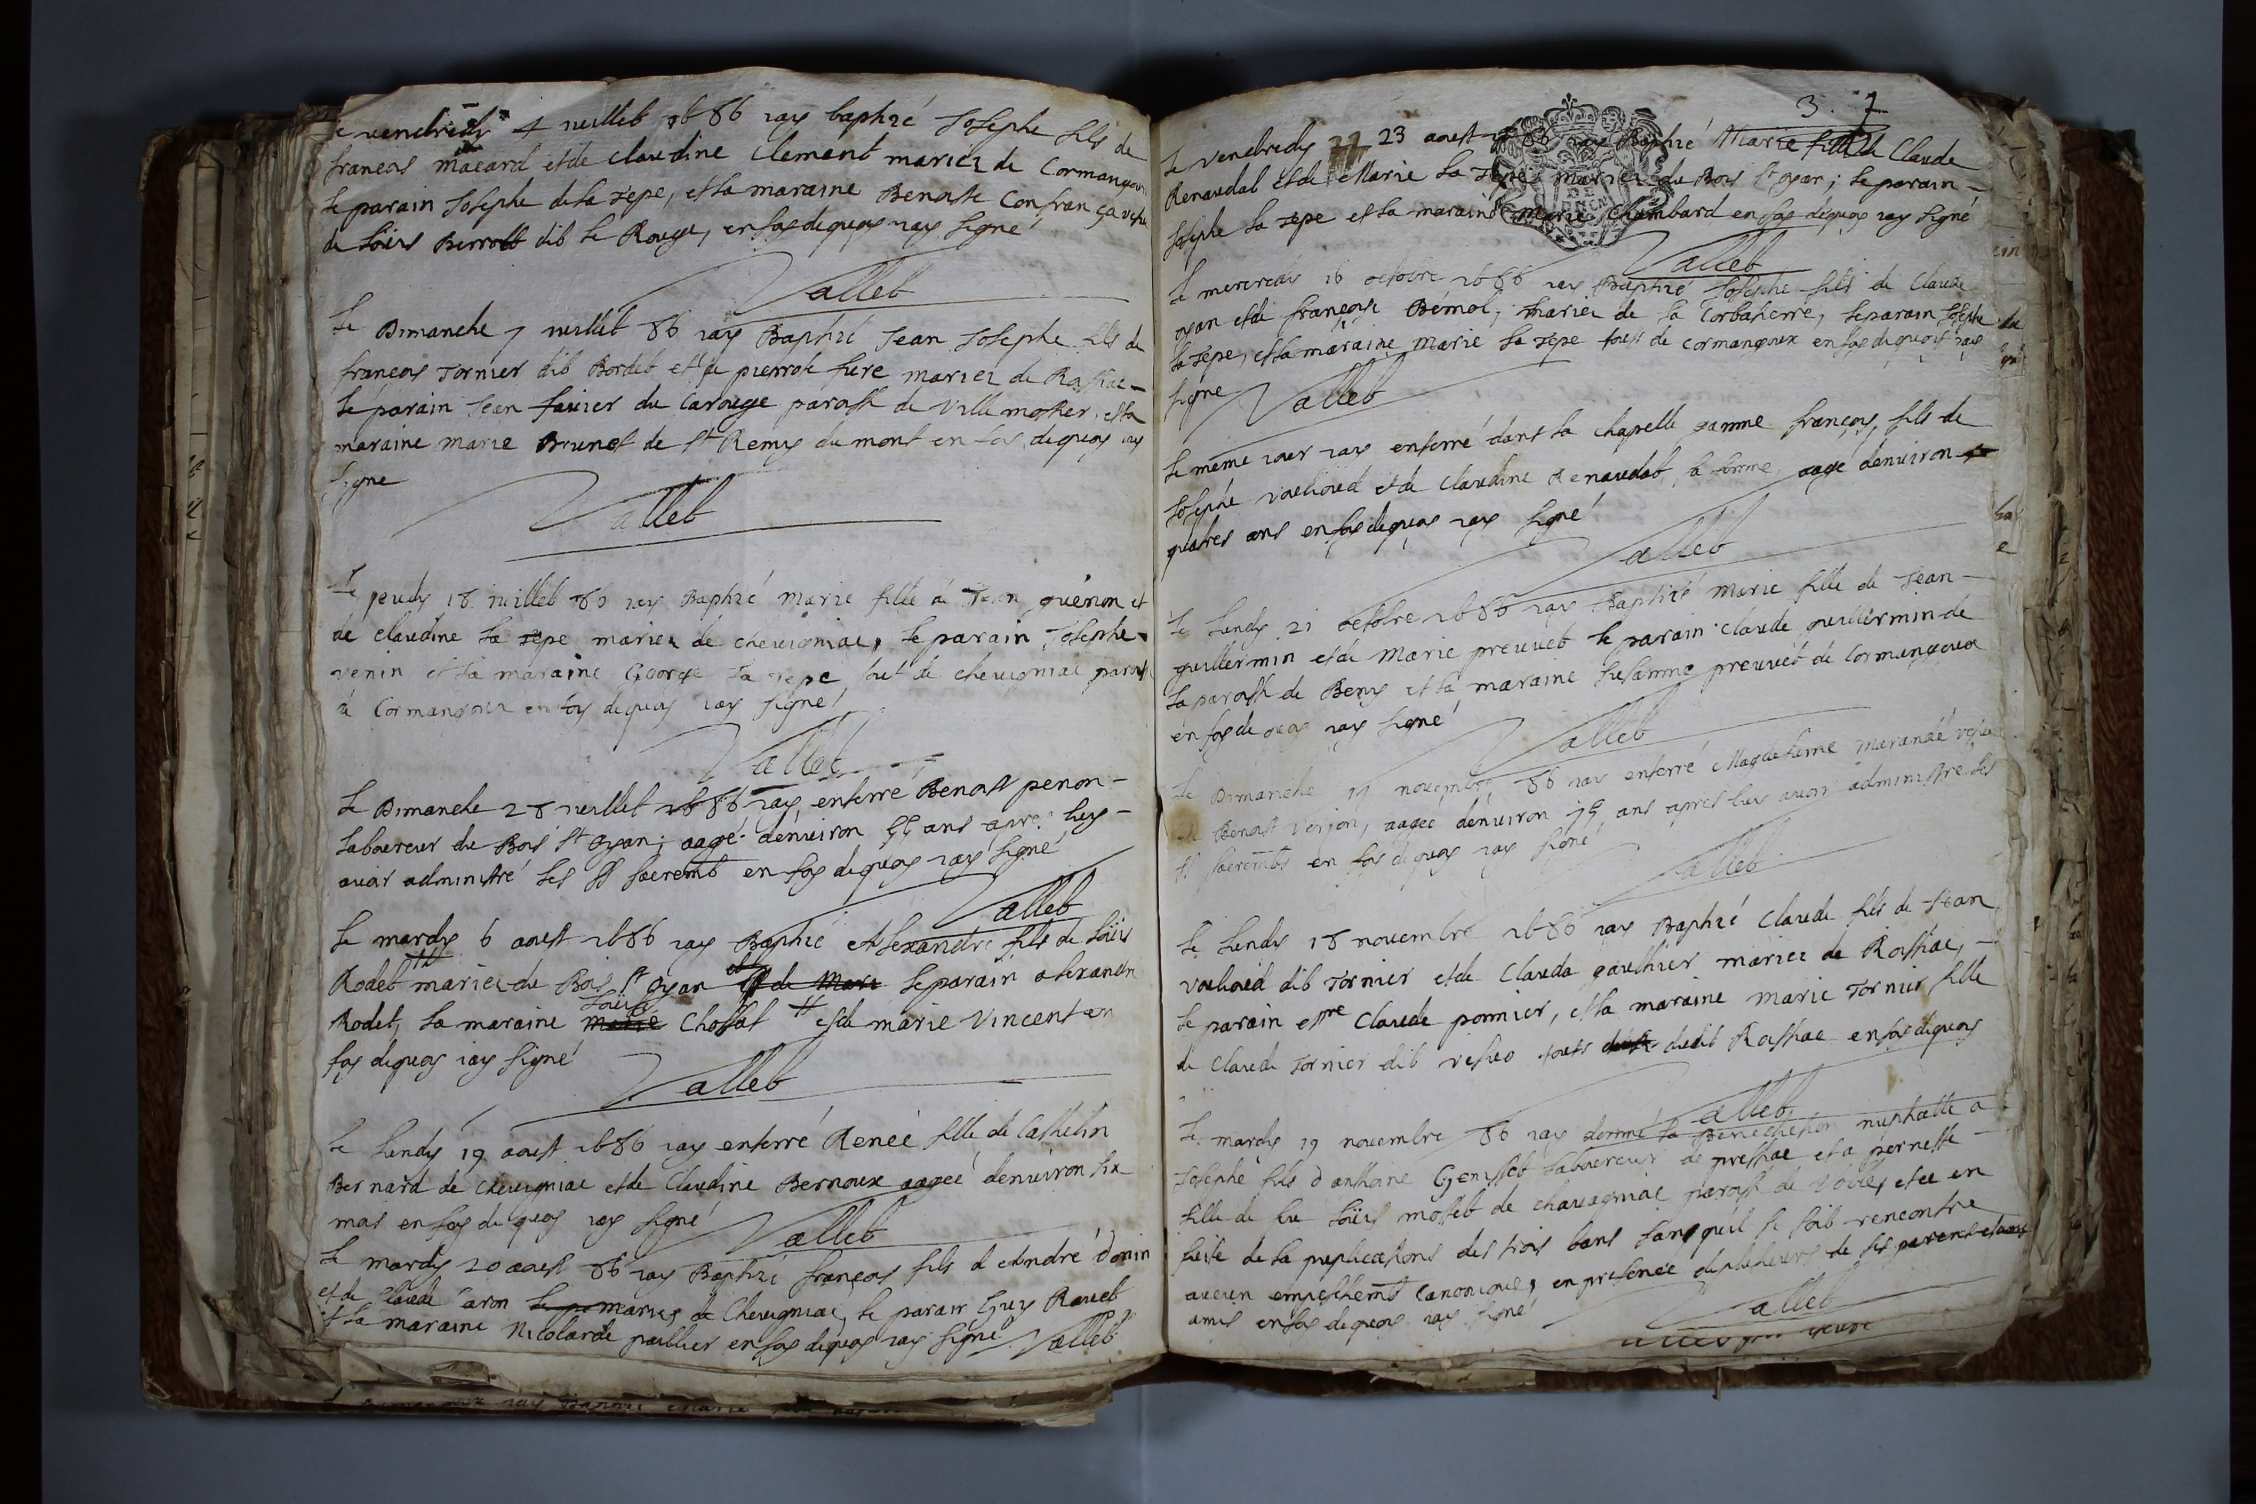 Le vendredy 4 iuillet 1686 iay baptizé Josephe fils de
françois macard et de claudine Clement mariez de Cormangoux
le parain Josephe de la Tepe, et la maraine Benoiste
de Loüis Perrott dit le Rouge, en foy dequoy iay signé
Vallet
Le Dimanche 7 iuillet 86 iay Baptizé Jean Josephe fils de
françois Tornier dit Bordet et de pierrote fure mariez de Rossiac
le parain Jean favier du Carouge paroisse de Villemostier, et la
maraine marie Brunet de St Remy du mont en foy dequoy iay
signe
Vallet
Le jeudy 18 iuillet 86 iay Baptizé marie fille à Jean guénon et
de claudine la Tepe mariez de chevigniac, le parain Josephe
venin et la maraine George la Tepe, tout de chevigniac paroisse
de Cormangoux en foy dequoy iay signé
Vallet
Le Dimanche 28 iuillet 1686 iay enterré Benoist penon
laboureur du Bois St Oyan; aagé denuiron 55 ans apres luy
auoir administré les SS sacremts en foy dequoy iay signé
Vallet
Le mardy 6 aoust 1686 iay Baptizé Alexandre fils de Loüis
Rodet mariez du Bois St Oyan et de Marie le parain alexandre
Rodet, la maraine Loüise Chossat et de marie Vincent en
foy dequoy iay signé
Vallet
Le Lundy 19 aoust 1686 iay enterré Reneé fille de Casthelin
Bernard de chevigniac et de Claudine Bernoux aageé denuiron six
mois en foy de quoy iay signé
Vallet
Le mardy 20 aoust 86 iay Baptizé françois fils de André donin
et de claude aron mariez de Chevigniac, le parain Guy Ravet
et la maraine Nicolarde paillier en foy dequoy iay signé Vallet
3. 7
Le Vendredy 23 aoust 1686 iay Baptizé Marie fille de Claude
Renaudat et de Marie la Tepe mariez du Bois St oyan; le parain
Josephe la Tepe et la maraine Marie Chambard en foy dequoy iay signé
Vallet
Le mercredy 16 octobre 1686 iay Baptizé Josephe fils de Claude
oyan et de françoise Bémol, mariez de la Corbatiere, le parain Josephe
la Tepe, et la maraine Marie la Tepe tous de cormangoux en foy dequoy iay
signe Vallet
Le même iour iay enterré dans la chapelle françois, fils de
Josephe vouhoud et de Claudine Renaudat, sa femme aagé denuiron
quatres ans en foy dequoy iay signé
Vallet
Le Lundy 21 octobre 1686 iay Baptizé Marie fille de Jean
guillermin et de Marie preuvet le parain Claude guillermin de
la paroisse de Beny et la maraine Susanne preuvet de Cormangoux
en foy de quoy iay signé
Vallet
Le Dimanche 17 novembre 86 iay enterré Magdeleine
de Benoist Verjon, aageé denuiron 75 ans apres luy auoir administre les
St sacremts en foy dequoy iay signé
Vallet
Le Lundy 18 novembre 1686 iay Baptizé Claude fils de Jean
vouhoud dit Tornier et de Clauda gauthier mariez de Rossiac,
le parain Claude ponnier, et la maraine Marie Tornier fille
de Claude Tornier dit tous dudit Rossiac en foy dequoy
Vallet
Le mardy 19 novembre 86 iay donné la Benediction nuptialle a
Josephe fils d'anthoine Genisset laboureur de pressiac et a pernette
fille de feu Loüis mosset de chavagniac paroisse de et ce en
suite de la publications des trois bans sans qu'il se soit rencontre
aucun empeschemt Canonique, en presence de plusieurs de ses parents et
amis en foy dequoy iay signé
Vallet